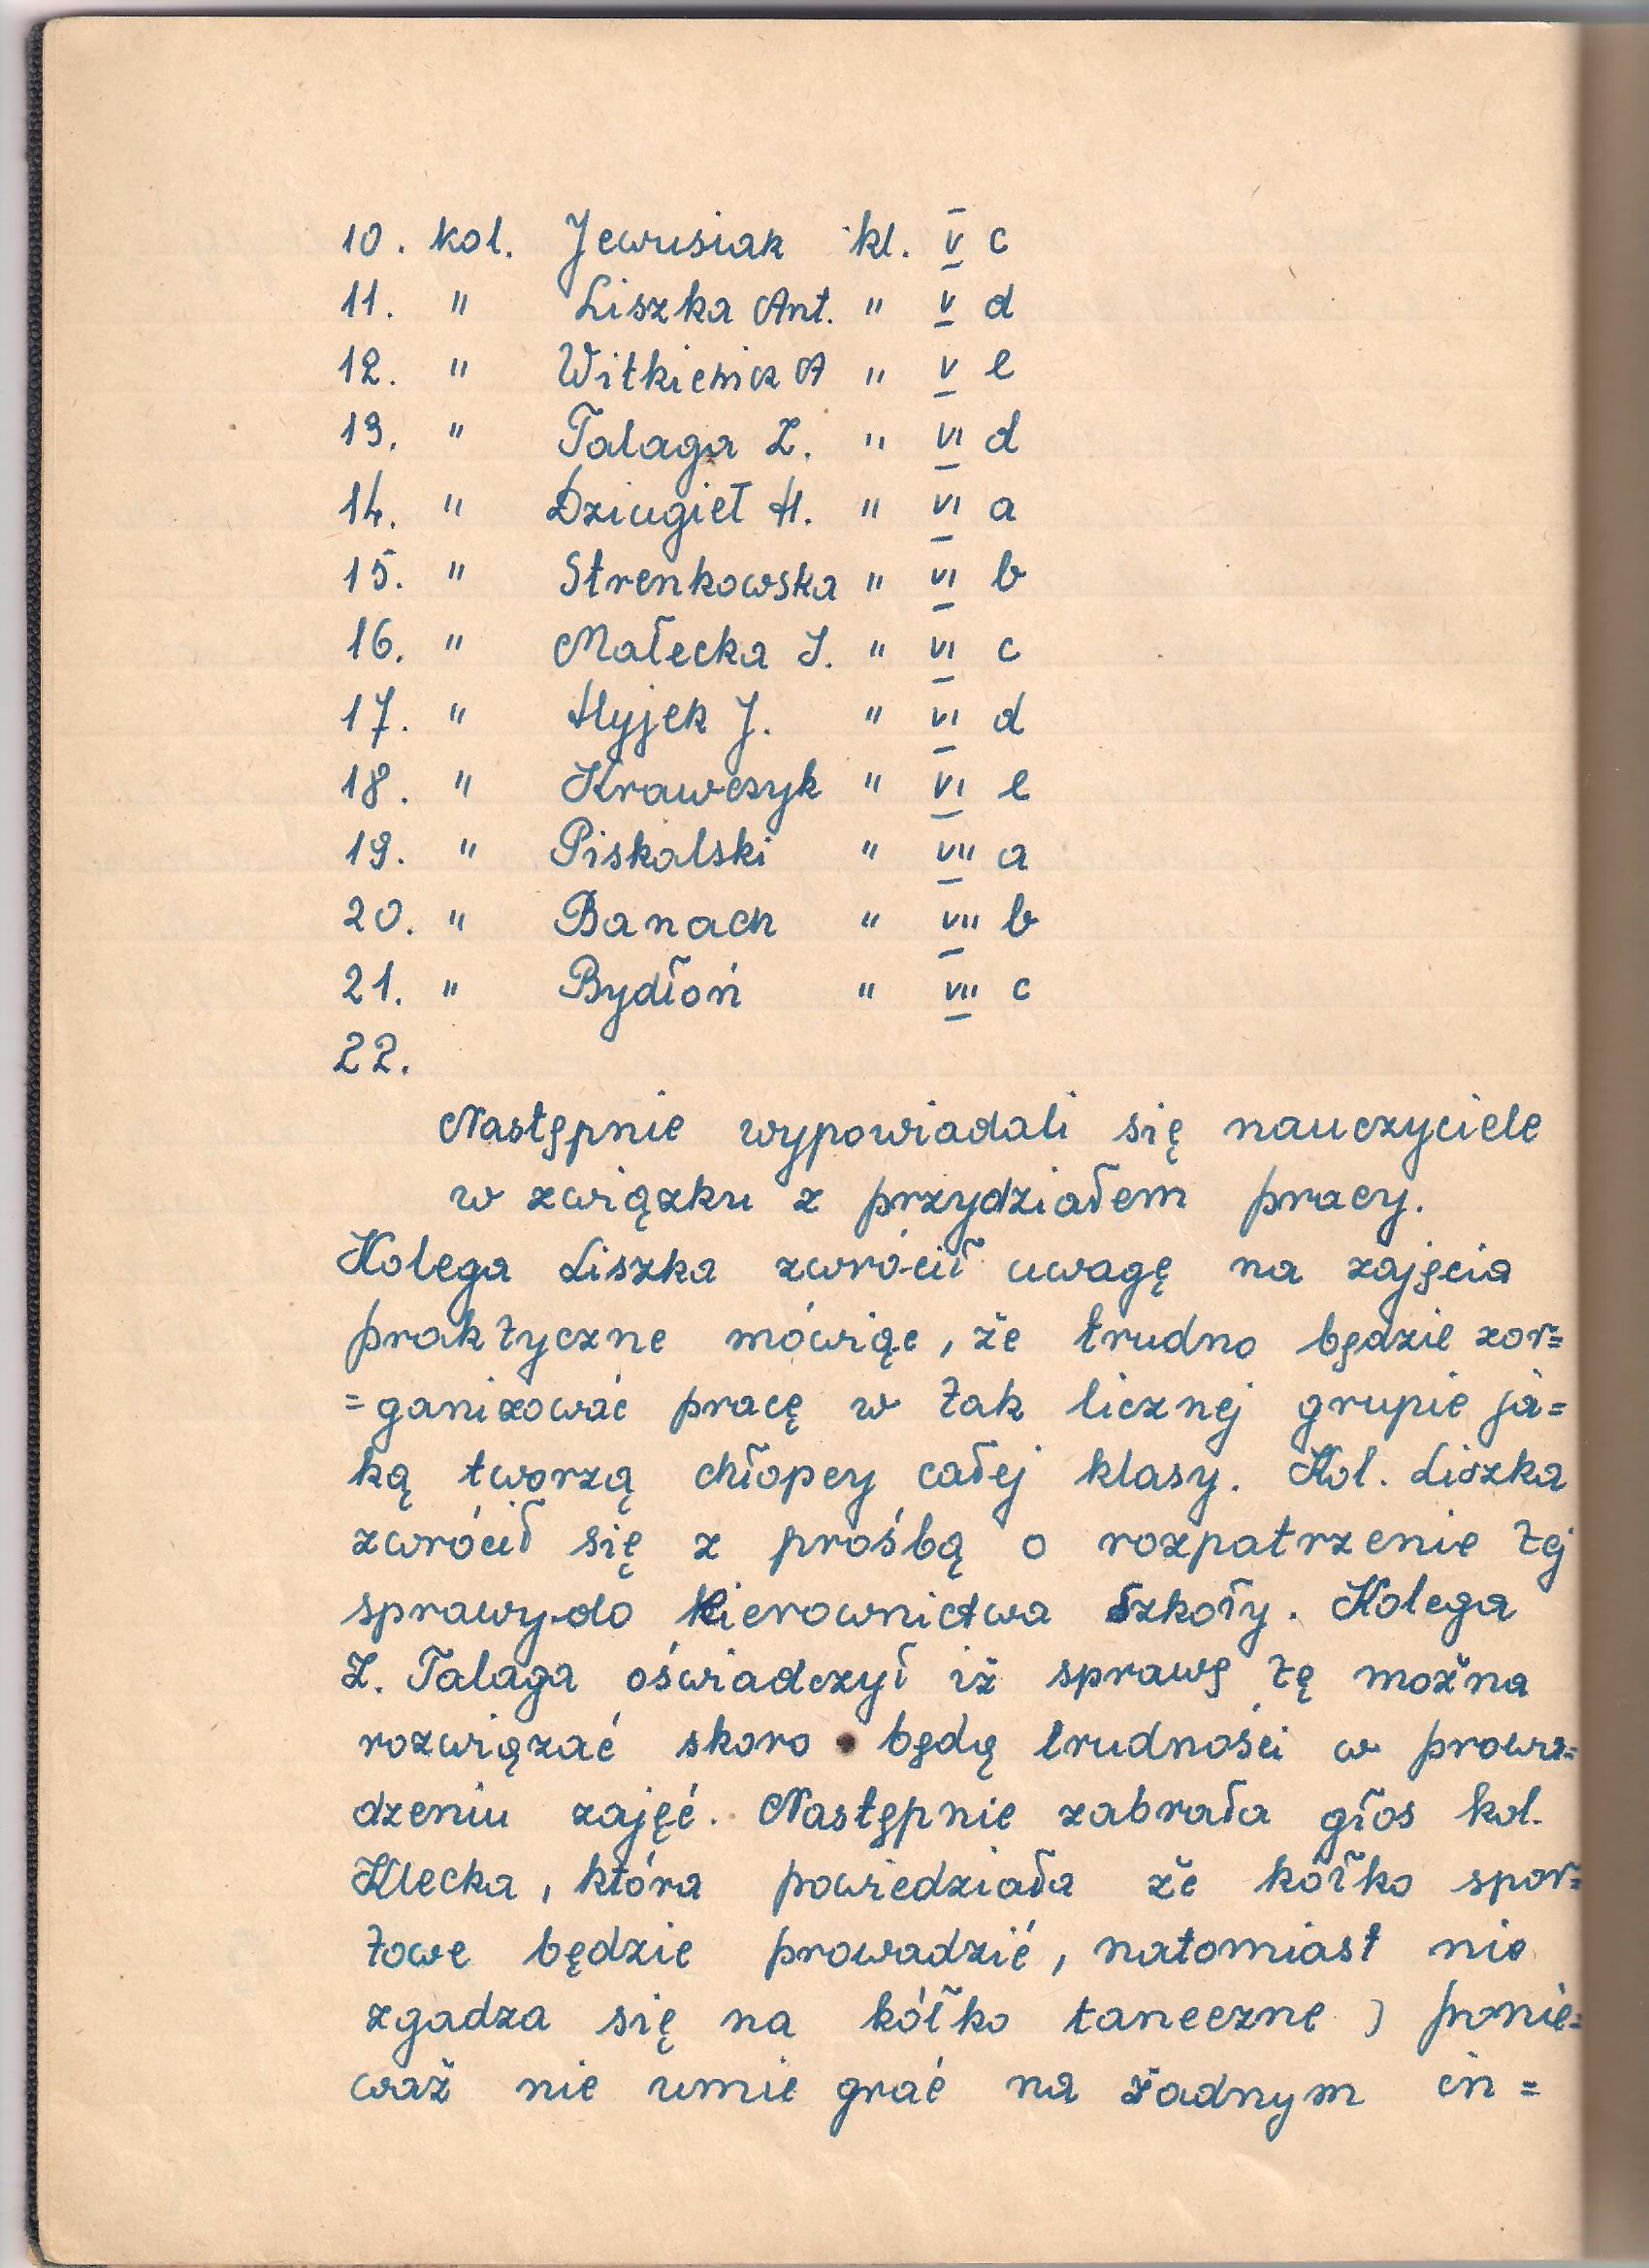 10. kol. Jewusiak kl. V c
11. " Liszka Ant. " V d
12. " Witkiewicz A " V e
13. " Talaga Z. " VI d
14. " Dziugieł H. " VI a
15. " Strenkowska " VI b
16. " Małecka J. " VI c
17. " Hyjek J. " VI d
18. " Krawczyk " VI e
19. " Piskalski " VII a
20. " Banach " VII b
21. " Bydłoń " VII c
22.
Następnie wypowiadali się nauczyciele
w związku z przydziałem pracy.
Kolega Liszka zwrócił uwagę na zajęcia
praktyczne mówiąc, że trudno będzie zor=
=ganizować pracę w tak licznej grupie ja=
ką tworzą chłopcy całej klasy. Kol. Liszka
zwrócił się z prośbą o rozpatrzenie tej
sprawy do Kierownictwa Szkoły. Kolega
Z. Talaga oświadczył iż sprawę tę można
rozwiązać skoro będą trudności w prowa=
dzeniu zajęć. Następnie zabrała głos kol.
Klecka, która powiedziała że kółko spor=
towe będzie prowadzić, natomiast nie
zgadza się na kółko taneczne, ponie=
waż nie umie grać na żadnym in=